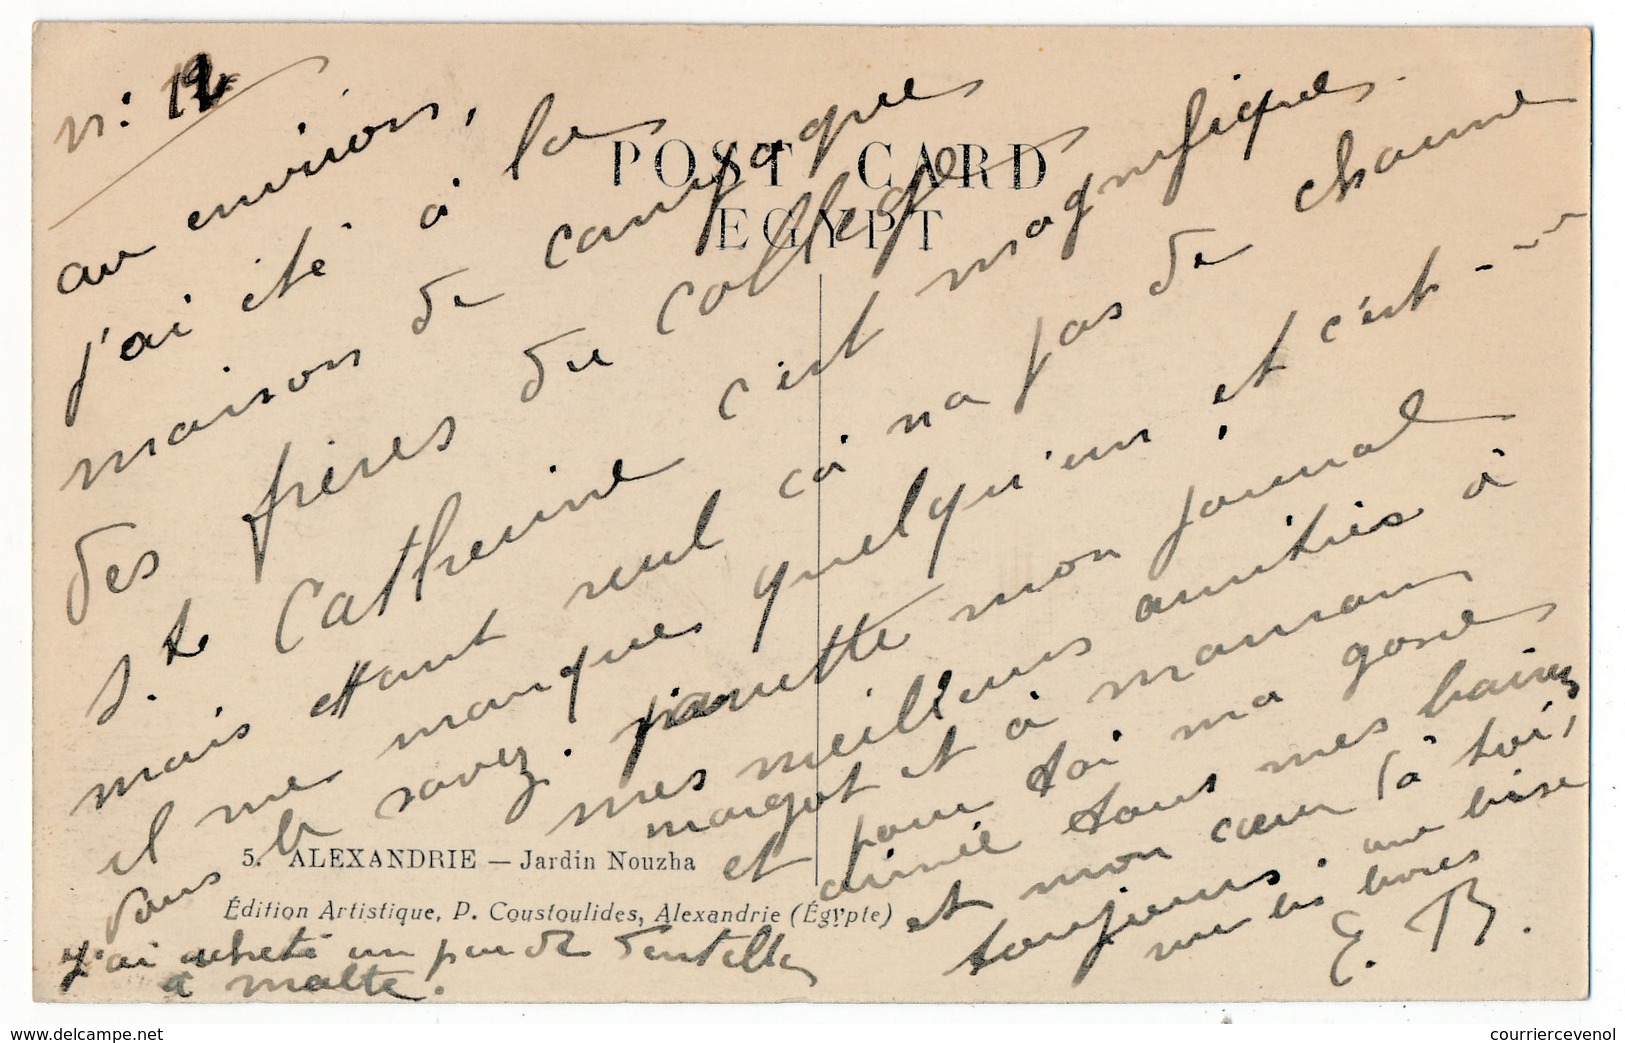 n: 12
POST CARD
EGYPT
aux environs,
j'ai été à la
maison de campagne
des frères du collège
Ste Catherine c'est magnifique
mais étant seul cà na pas de charme
il me manque quelqu'un, et c'est ---
vous le savez. mon journal
mes meilleurs amitiés à
margot et à maman
et pour toi ma gosse
aimée tous mes baisers
et mon cœur (à toi,
toujours. une bise
sur les lèvres
E. B.
5. ALEXANDRIE — Jardin Nouzha
Édition Artistique, P. Coustoulides, Alexandrie (Égypte)
J'ai acheté un peu de dentelles
à malte.
delcampe.net
courriercevenol